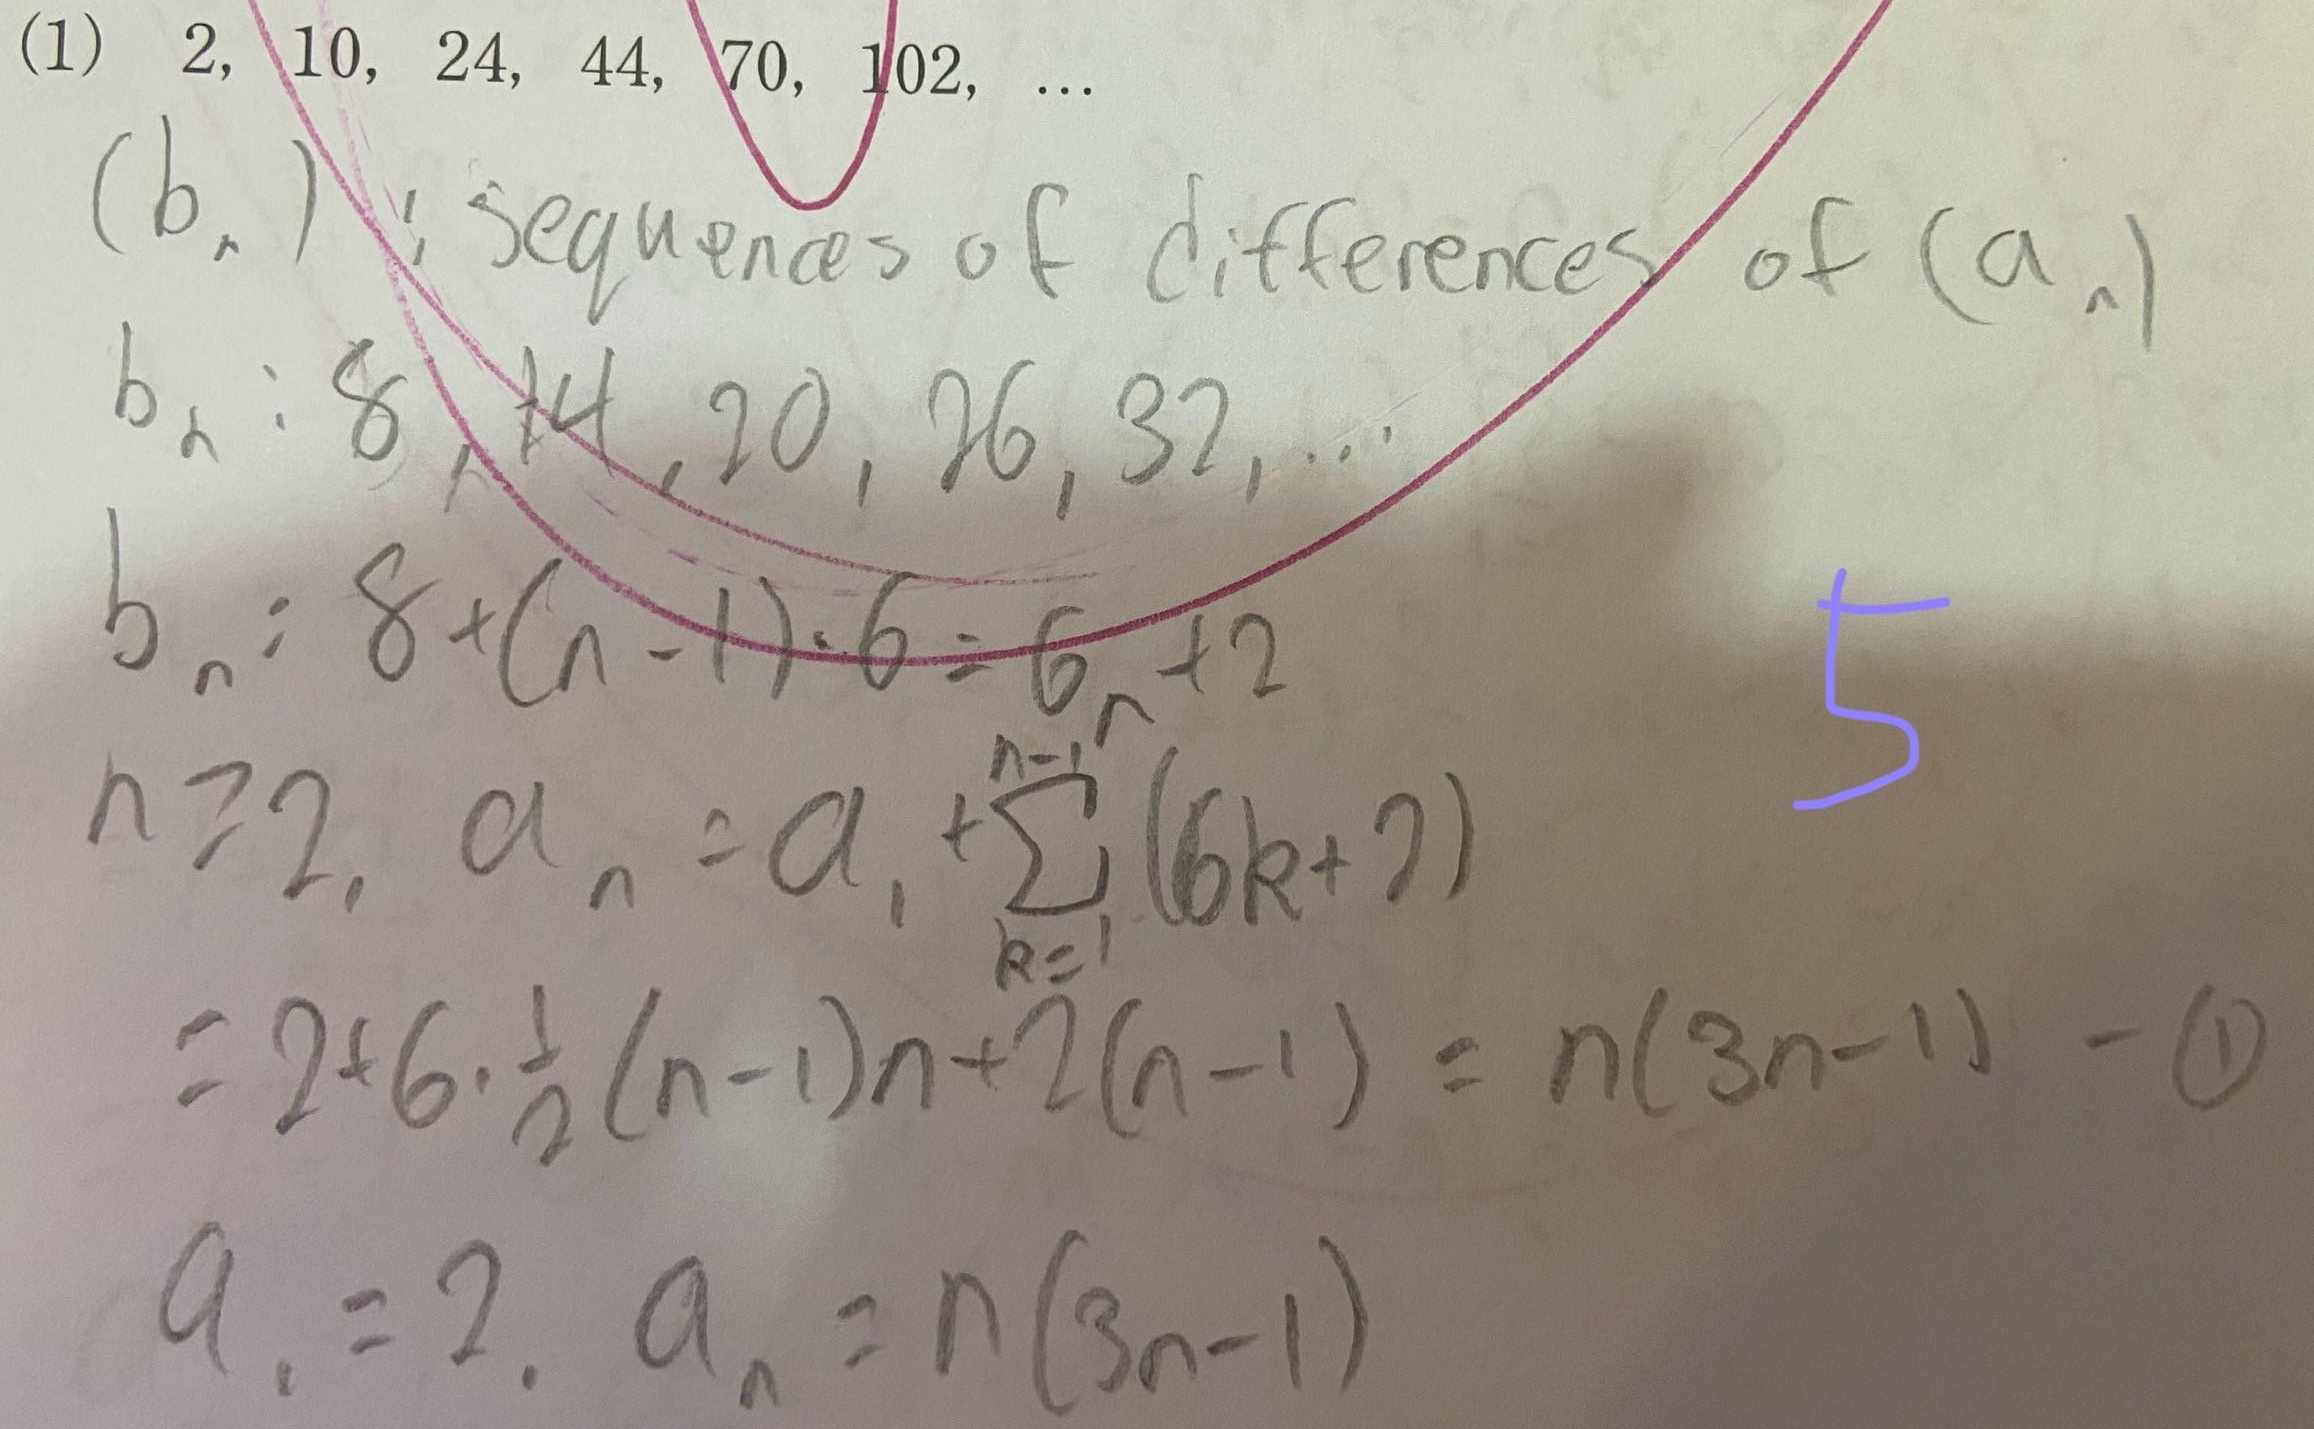 (1) 2, 10, 24, 44, 70, 102, …
(bₙ) : sequences of differences of (aₙ)
bₙ : 8, 14, 20, 26, 32, ...
bₙ : 8+(n-1)·6=6n+2
n≧2, aₙ = a₁ + Σ_{k=1}^{n-1} (6k+2)
= 2+6·1/2(n-1)n+2(n-1) = n(3n-1) - ①
a₁ = 2. aₙ = n(3n-1)
5